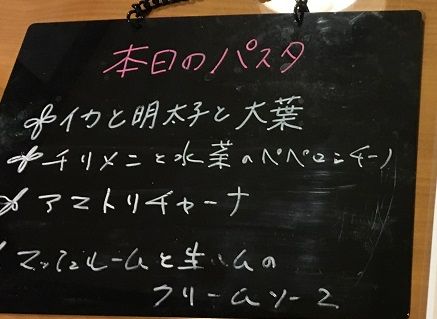 本日のパスタ
イカと明太子と大葉
チリメンと水菜のペペロンチーノ
アマトリチャーナ
マッシュルームと生ハムの
クリームソース